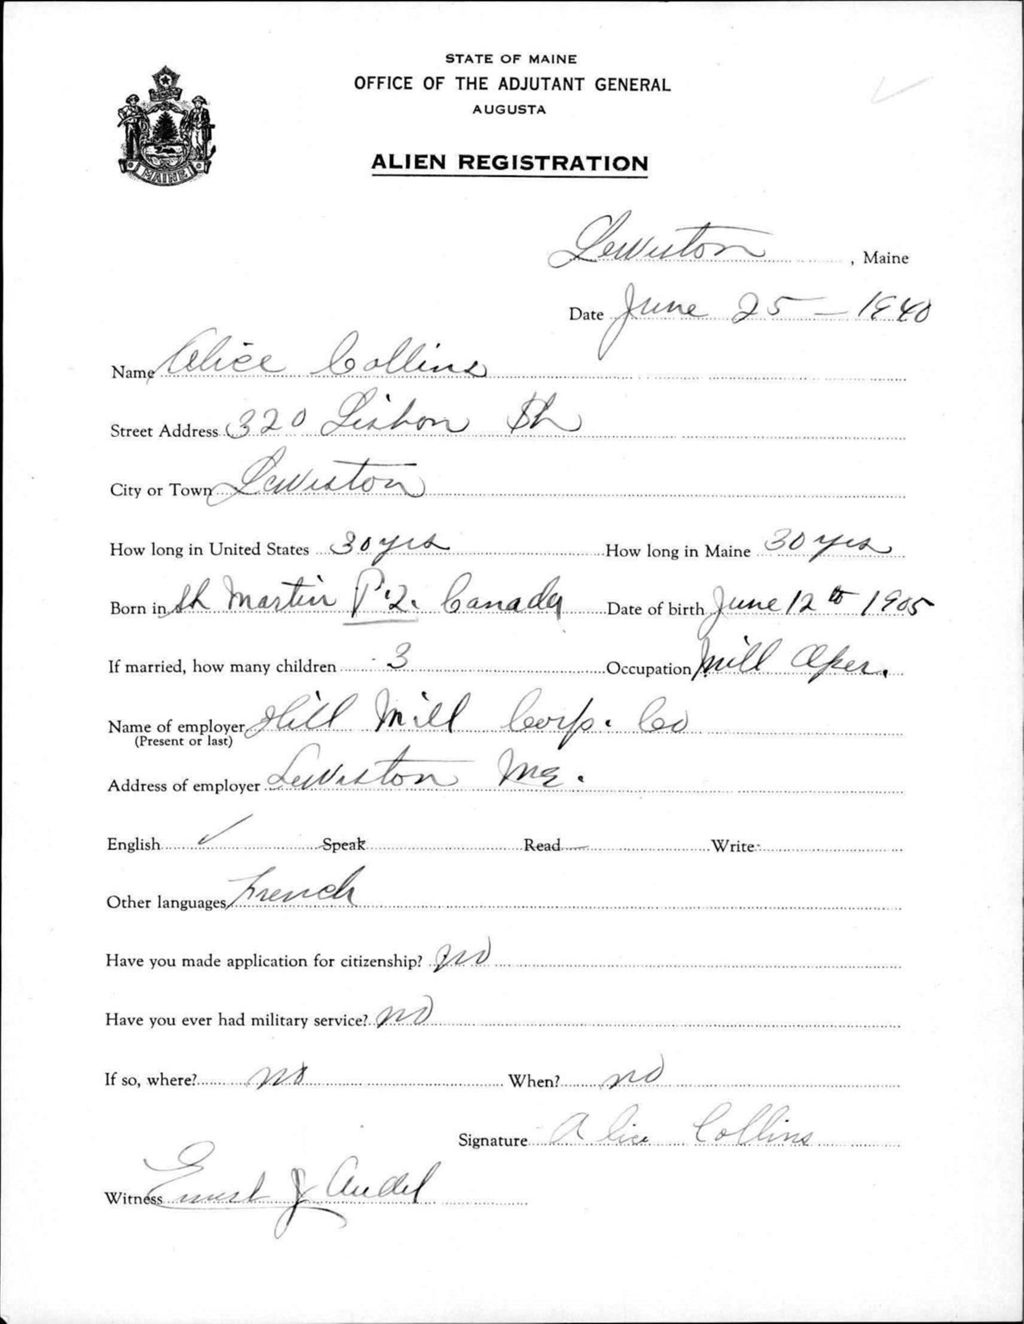 STATE OF MAINE
OFFICE OF THE ADJUTANT GENERAL
AUGUSTA
MAINE
ALIEN REGISTRATION
Lewiston, Maine
Date June 25 - 1940
Name Alice Collins
Street Address 320 Lisbon St
City or Town Lewiston
How long in United States 30 yrs How long in Maine 30 yrs
Born in St Martin P.Q. Canada Date of birth June 12th 1905
If married, how many children 3 Occupation Mill Oper.
Name of employer Hill Mill Corp. Co
(Present or last)
Address of employer Lewiston Me.
English ✓ Speak Read Write
Other languages French
Have you made application for citizenship? no
Have you ever had military service? no
If so, where? no When? no
Signature Alice Collins
Witness Ernest J Audet